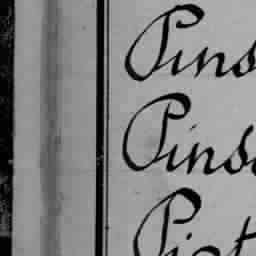 Pins
Pins
Pist